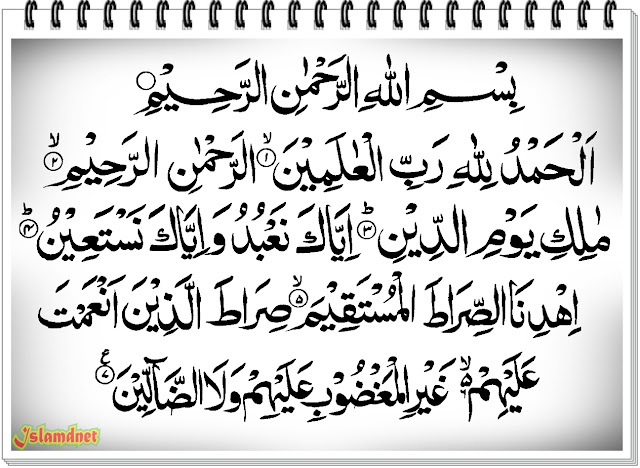 بِسْمِ اللهِ الرَّحْمٰنِ الرَّحِيْمِ ○
اَلْحَمْدُ لِلّٰهِ رَبِّ الْعٰلَمِيْنَ ۙ﴿۱﴾ الرَّحْمٰنِ الرَّحِيْمِ ۙ﴿۲﴾
مٰلِكِ يَوْمِ الدِّيْنِ ؕ﴿۳﴾ اِيَّاكَ نَعْبُدُ وَاِيَّاكَ نَسْتَعِيْنُ ؕ﴿۴﴾
اِهْدِنَا الصِّرَاطَ الْمُسْتَقِيْمَ ۙ﴿۵﴾ صِرَاطَ الَّذِيْنَ اَنْعَمْتَ
عَلَيْهِمْ ۙ۬ غَيْرِ الْمَغْضُوْبِ عَلَيْهِمْ وَلَا الضَّآلِّيْنَ ﴿۷﴾ع
Islamdnet